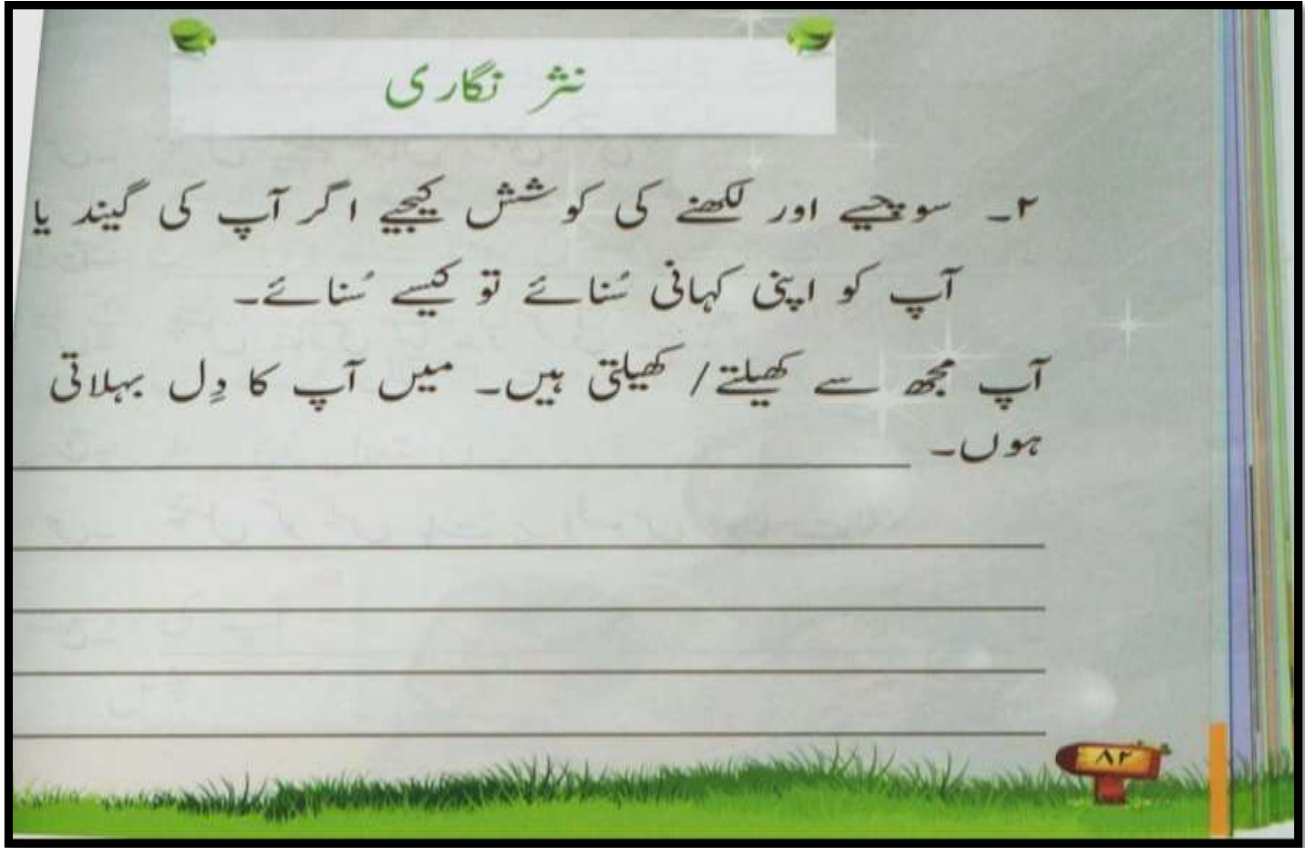 نثر نگاری
۲۔ سوچیے اور لکھنے کی کوشش کیجیے اگر آپ کی گیند یا
آپ کو اپنی کہانی سُنائے تو کیسے سُنائے۔
آپ مجھ سے کھیلتے / کھیلتی ہیں۔ میں آپ کا دِل بہلاتی
ہوں۔
۸۲